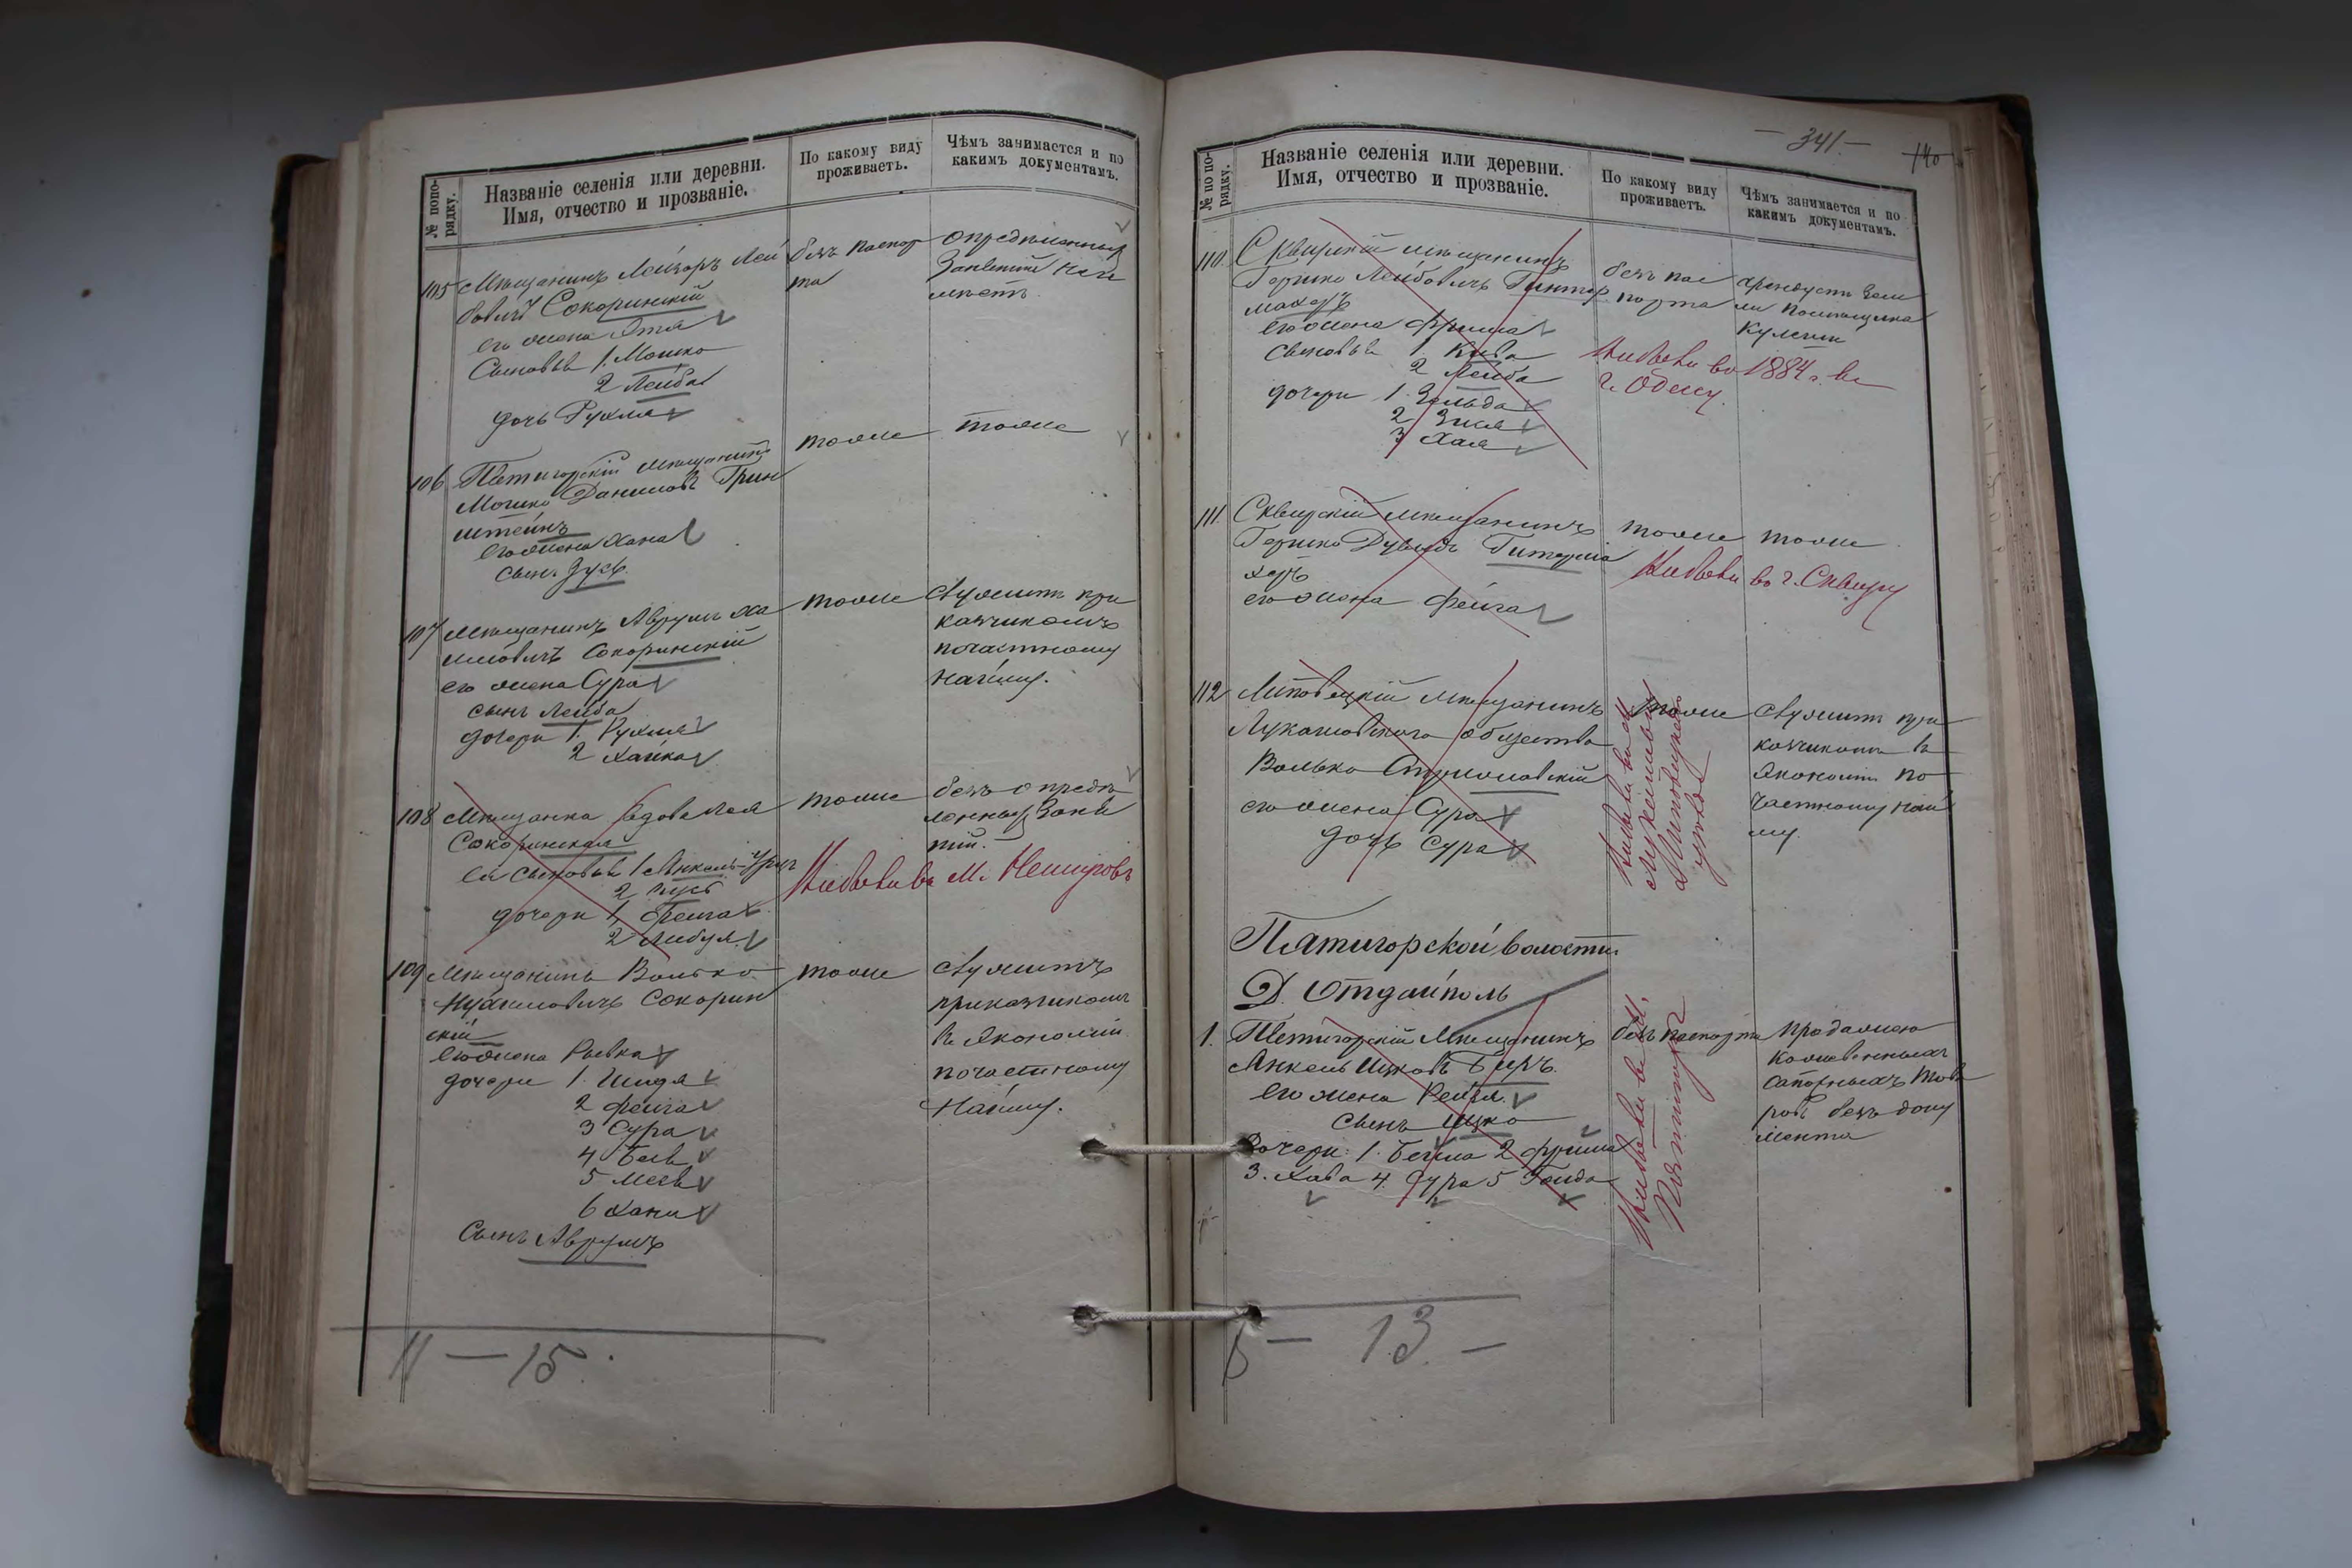 № попо-
рядку.
Названіе селенія или деревни.
Имя, отчество и прозваніе.
По какому виду
проживаетъ.
Чѣмъ занимается и по
какимъ документамъ.
105 Мѣщанинъ Лейзоръ Лей
бовичъ Сокоринскій
его жена Этя
Сыновья 1. Мошко
2 Лейба
дочь Рухля
безъ паспор
та
опредѣленныхъ
Занятій не и
мѣетъ.
106 Пятигорскій мѣщанинъ
Мошко Даниловъ Грин
штейнъ
его жена Хана
сынъ Зусь.
тоже
тоже
107 мѣщанинъ Аврумъ Ха
имовичъ Сокоринскій
его жена Сура
сынъ Лейба
дочери 1. Рухля
2 Хайка
тоже
служитъ при
кащикомъ
почастному
найму.
108 Мѣщанка вдова Лея
Сокоринская
ея сыновья 1 Янкель-
2 Зусь
дочери 1, Фейга
2 Либуля
тоже
безъ опредѣ
ленныхъ заня
тій.
Выбыли въ М. Немировъ
109 Мѣщанинъ Волько
Нухимовичъ Сокорин
скій
его жена Рывка
дочери 1. Шндя
2 Фейга
3 Сура
4 Бейв
5
6 Хана
Сынъ Аврумъ
тоже
служитъ
приказчикомъ
въ Экономіи
почастному
Найму.
11 — 15.
— 341. —
140
№ по по-
рядку.
Названіе селенія или деревни.
Имя, отчество и прозваніе.
По какому виду
проживаетъ.
Чѣмъ занимается и по
какимъ документамъ.
110. Сквирскій мѣщанинъ
Гершко Лейбовичъ Гинтер
махеръ
его жена Фрима
сыновья 1 Кива
2 Лейба
дочери 1. Зельда
2 Зися
3 Хая
безъ пас
порта
арендуетъ зем
ли помѣщика
Выбыли въ 1884 г. въ
г. Одессу.
111. Сквирскій мѣщанинъ
Гершко Дувидъ Гитерма
херъ
его жена Фейга
тоже
тоже
Выбыли въ г. Сквиру
112 Липовецкій мѣщанинъ
Лукашовскаго общества
Волько
его жена Сура
дочь Сура
тоже
служитъ при
кащикомъ въ
Экономіи по
частному най
му.
Выбыли въ М.
Липовецкаго
уѣзда
Пятигорской волости
Д. Отдайполь
1. Пятигорскій Мѣщанинъ
Янкель Ицковъ Биръ.
Его жена Рейзя.
сынъ Ицко
Дочери: 1. Бейла 2 Фрима
3. Хава 4. Сура 5 Голда
безъ паспорта
продажею
кожевенныхъ
сапожныхъ това
ровъ безъ доку
мента
Выбыли въ М.
Пятигоры
5 — 13. —